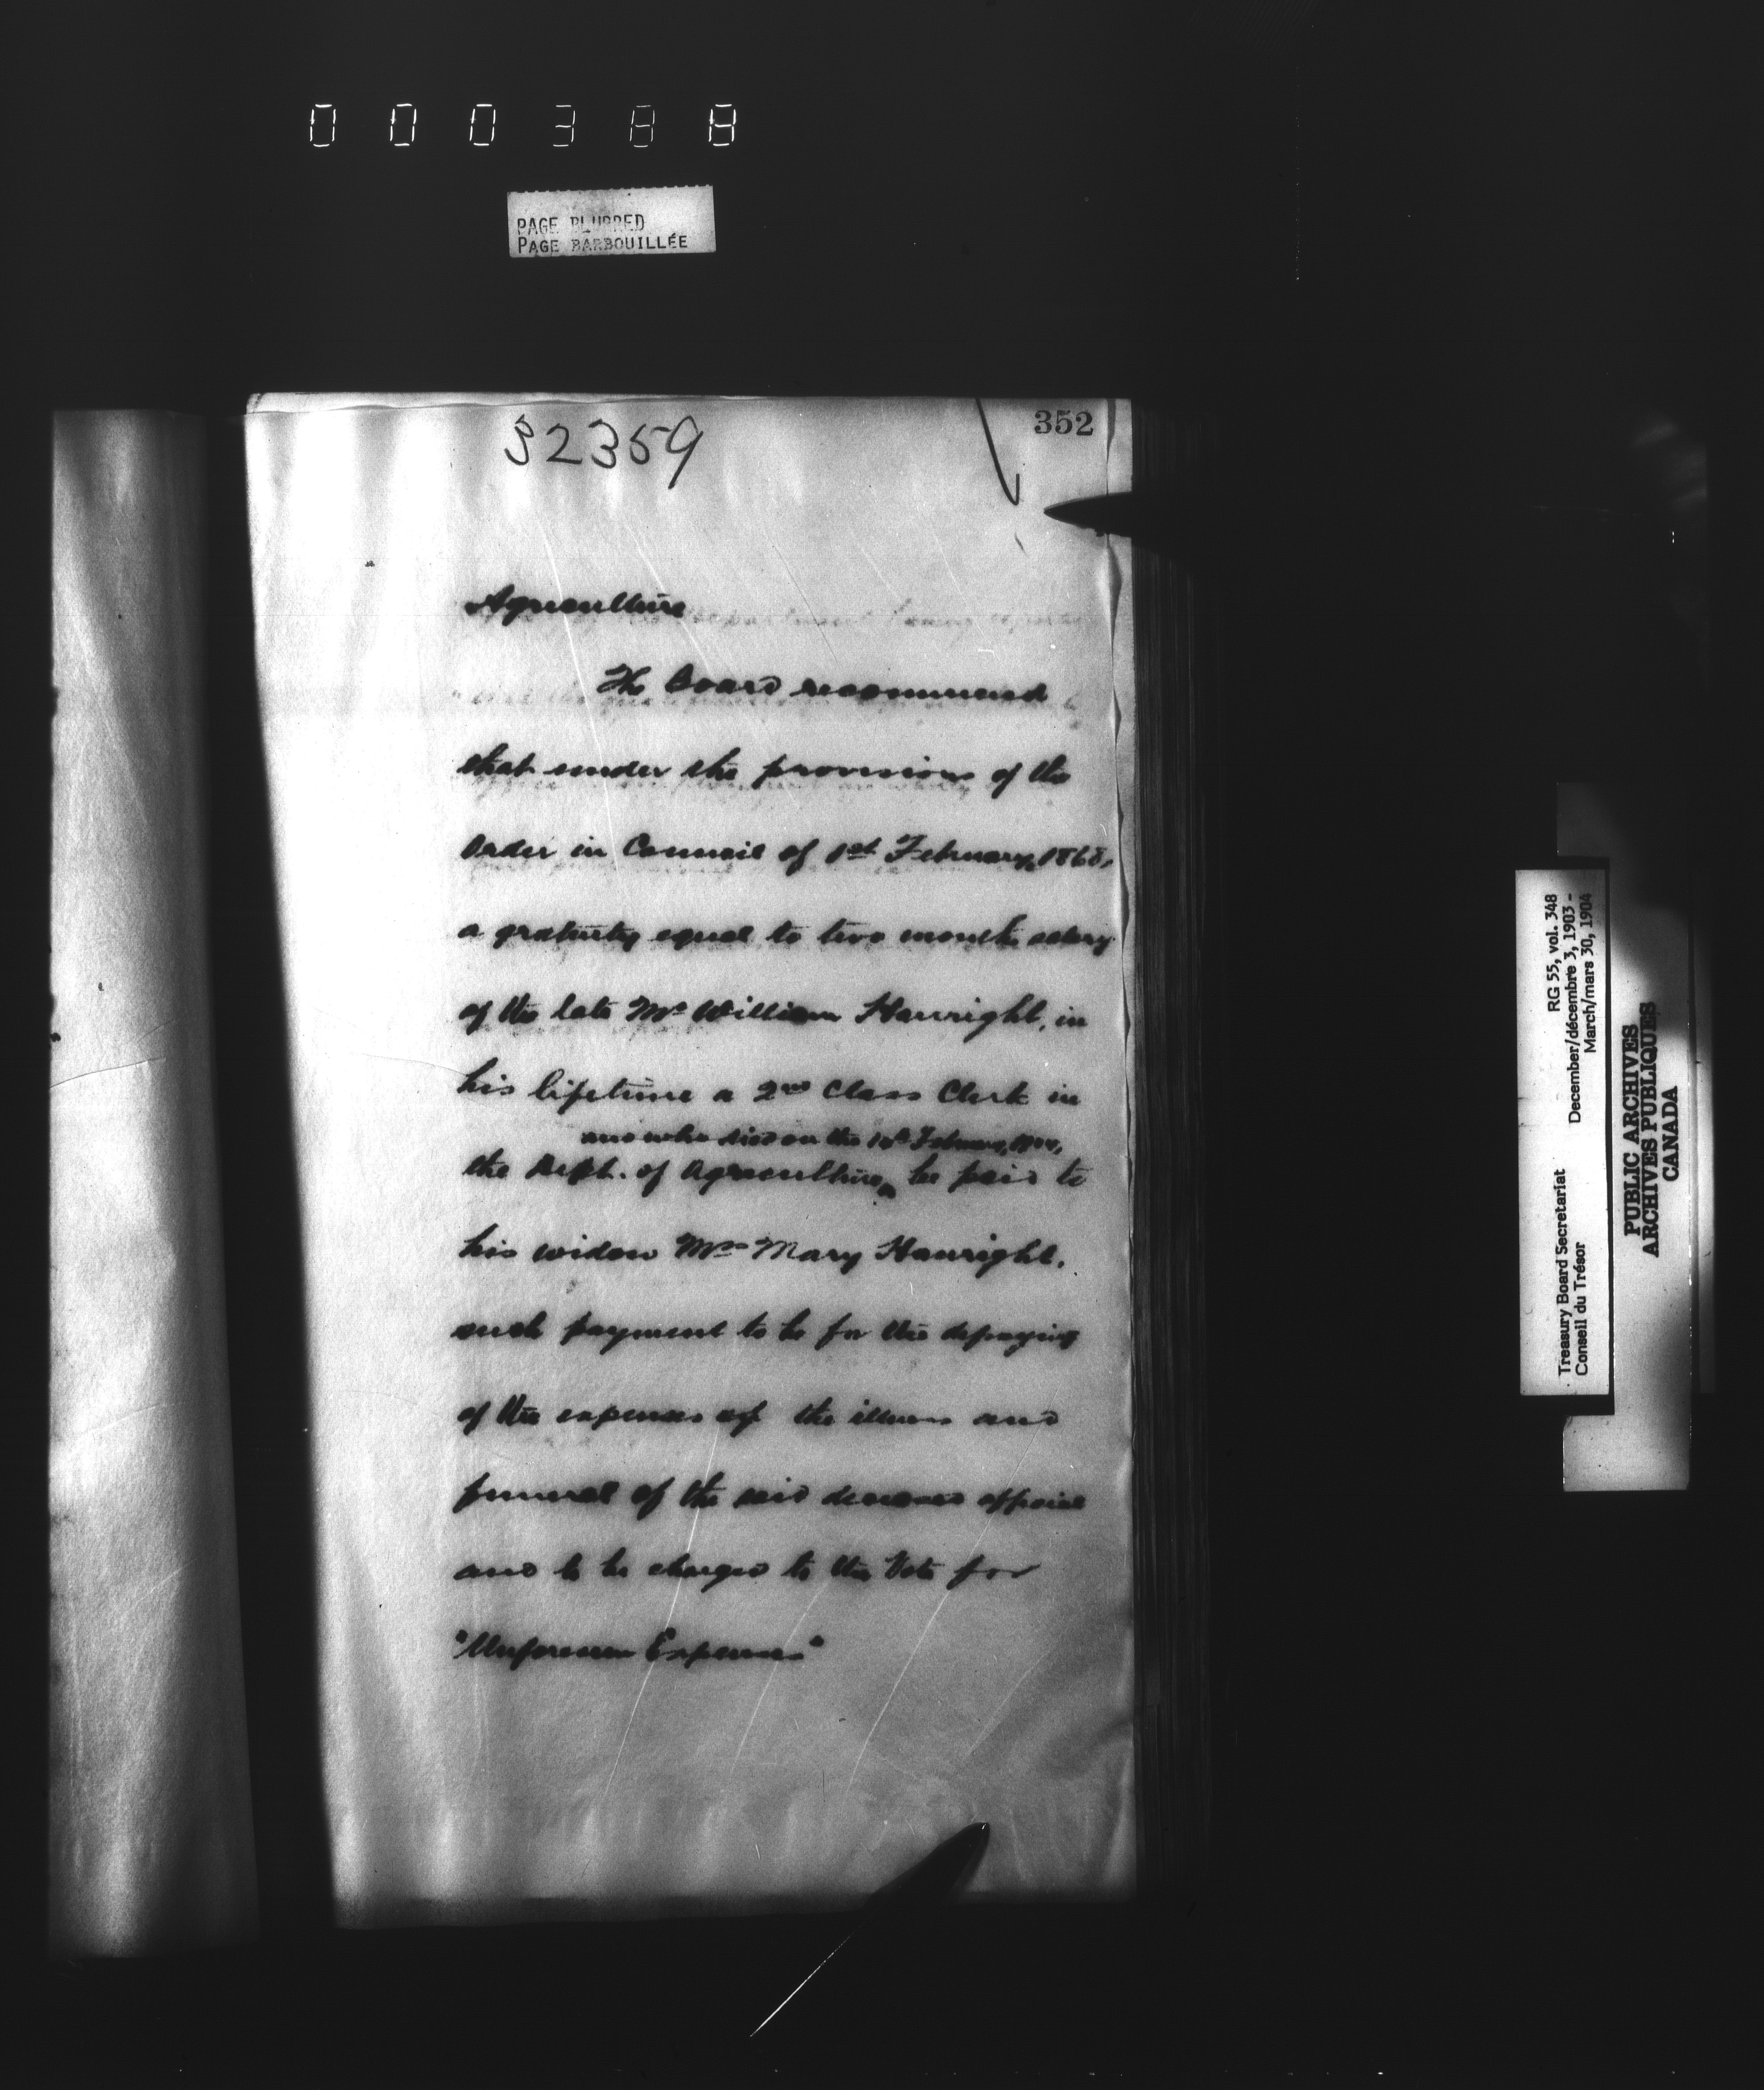 000388
PAGE BLURRED
PAGE BARBOUILLÉE
352
32359
Agriculture
The Board recommend
that under the provisions of the
Order in Council of 1st February, 1868,
a gratuity equal to two months salary
of the late Mr William Hanright, in
his lifetime a 2nd Class Clerk in
and who died on the February, 1904,
the Dept. of Agriculture, be paid to
his widow Mrs Mary Hanright,
such payment to be for the defraying
of the expenses of the illness and
funeral of the said deceased official
and to be charged to the Vote for
"Unforeseen Expenses"
Treasury Board Secretariat RG 55, vol. 348
Conseil du Trésor December/décembre 3, 1903 -
March/mars 30, 1904
PUBLIC ARCHIVES
ARCHIVES PUBLIQUES
CANADA